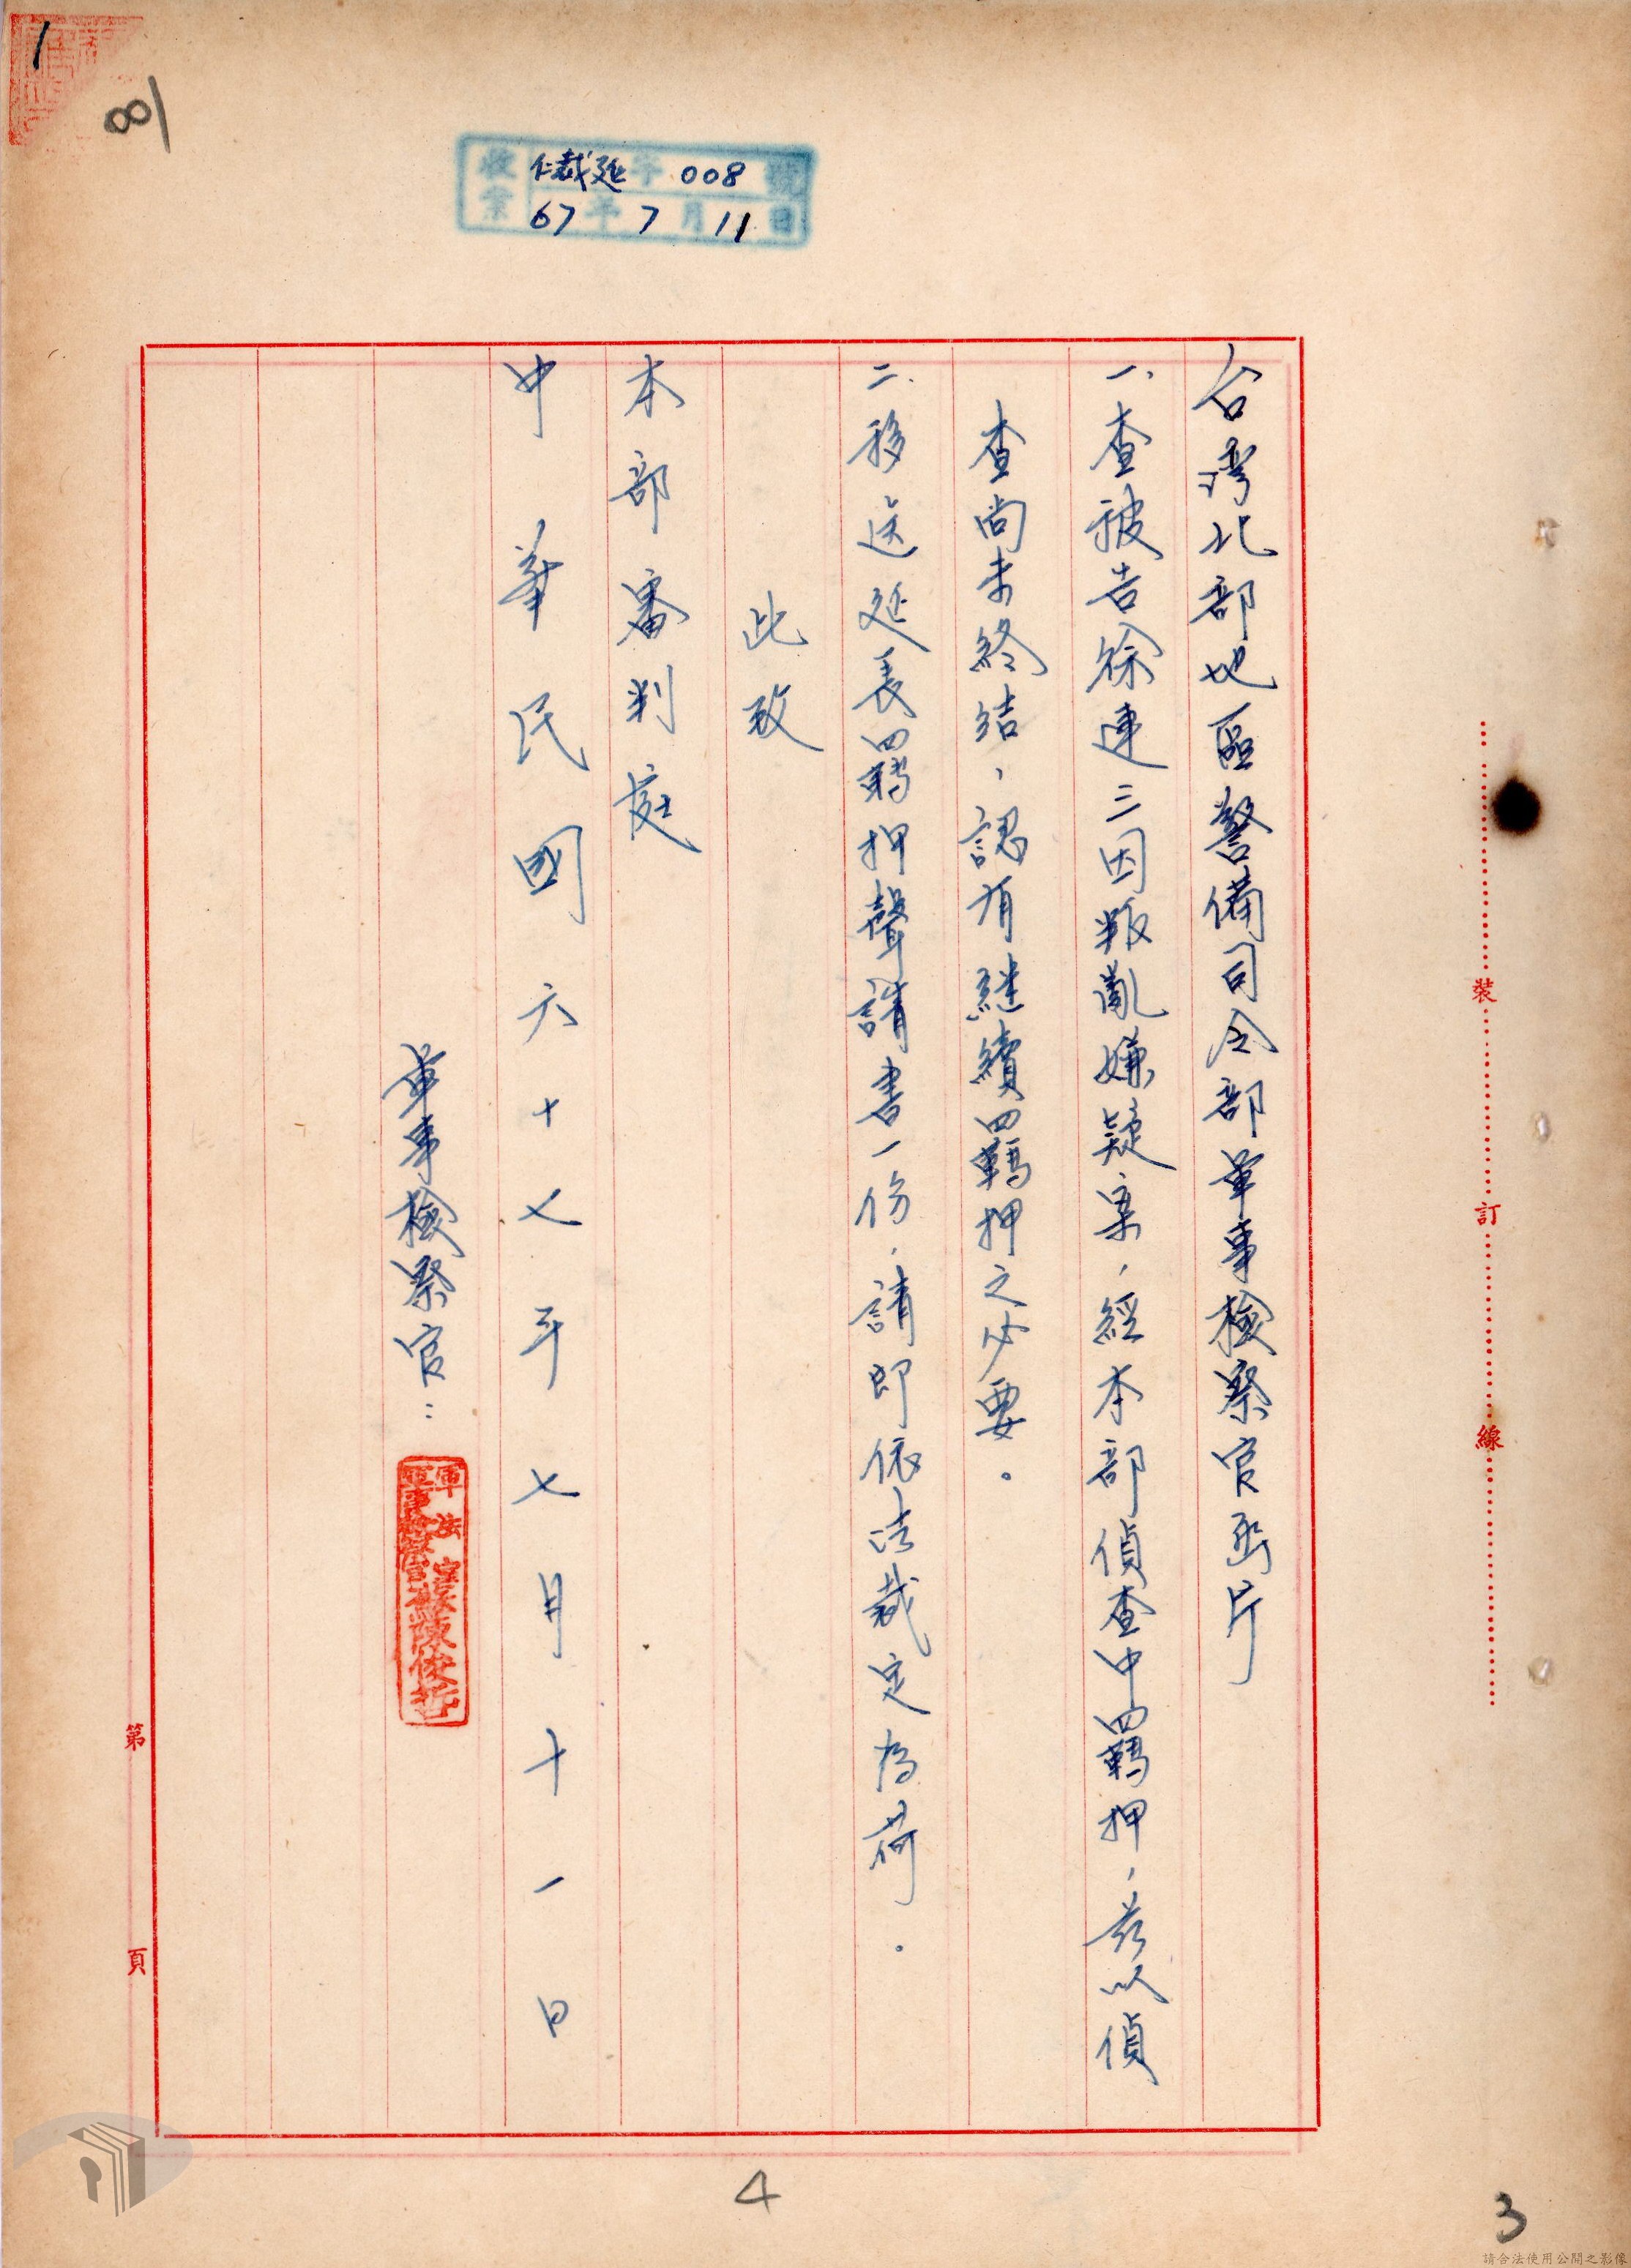 1
81
收案 仁裁延字008號
67年7月11日
台灣北部地區警備司令部軍事檢察官函片
一、查被告徐連三因叛亂嫌疑案，經本部偵查中羈押，茲以偵
查尚未終結，認有繼續羈押之必要。
二、移送延長羈押聲請書一份，請即依法裁定為荷。
此致
本部審判庭
中華民國六十七年七月十一日
軍事檢察官：
軍法室
軍事檢察官 陳俊哲
裝 訂 線
第 頁
4
3
請合法使用公開之影像